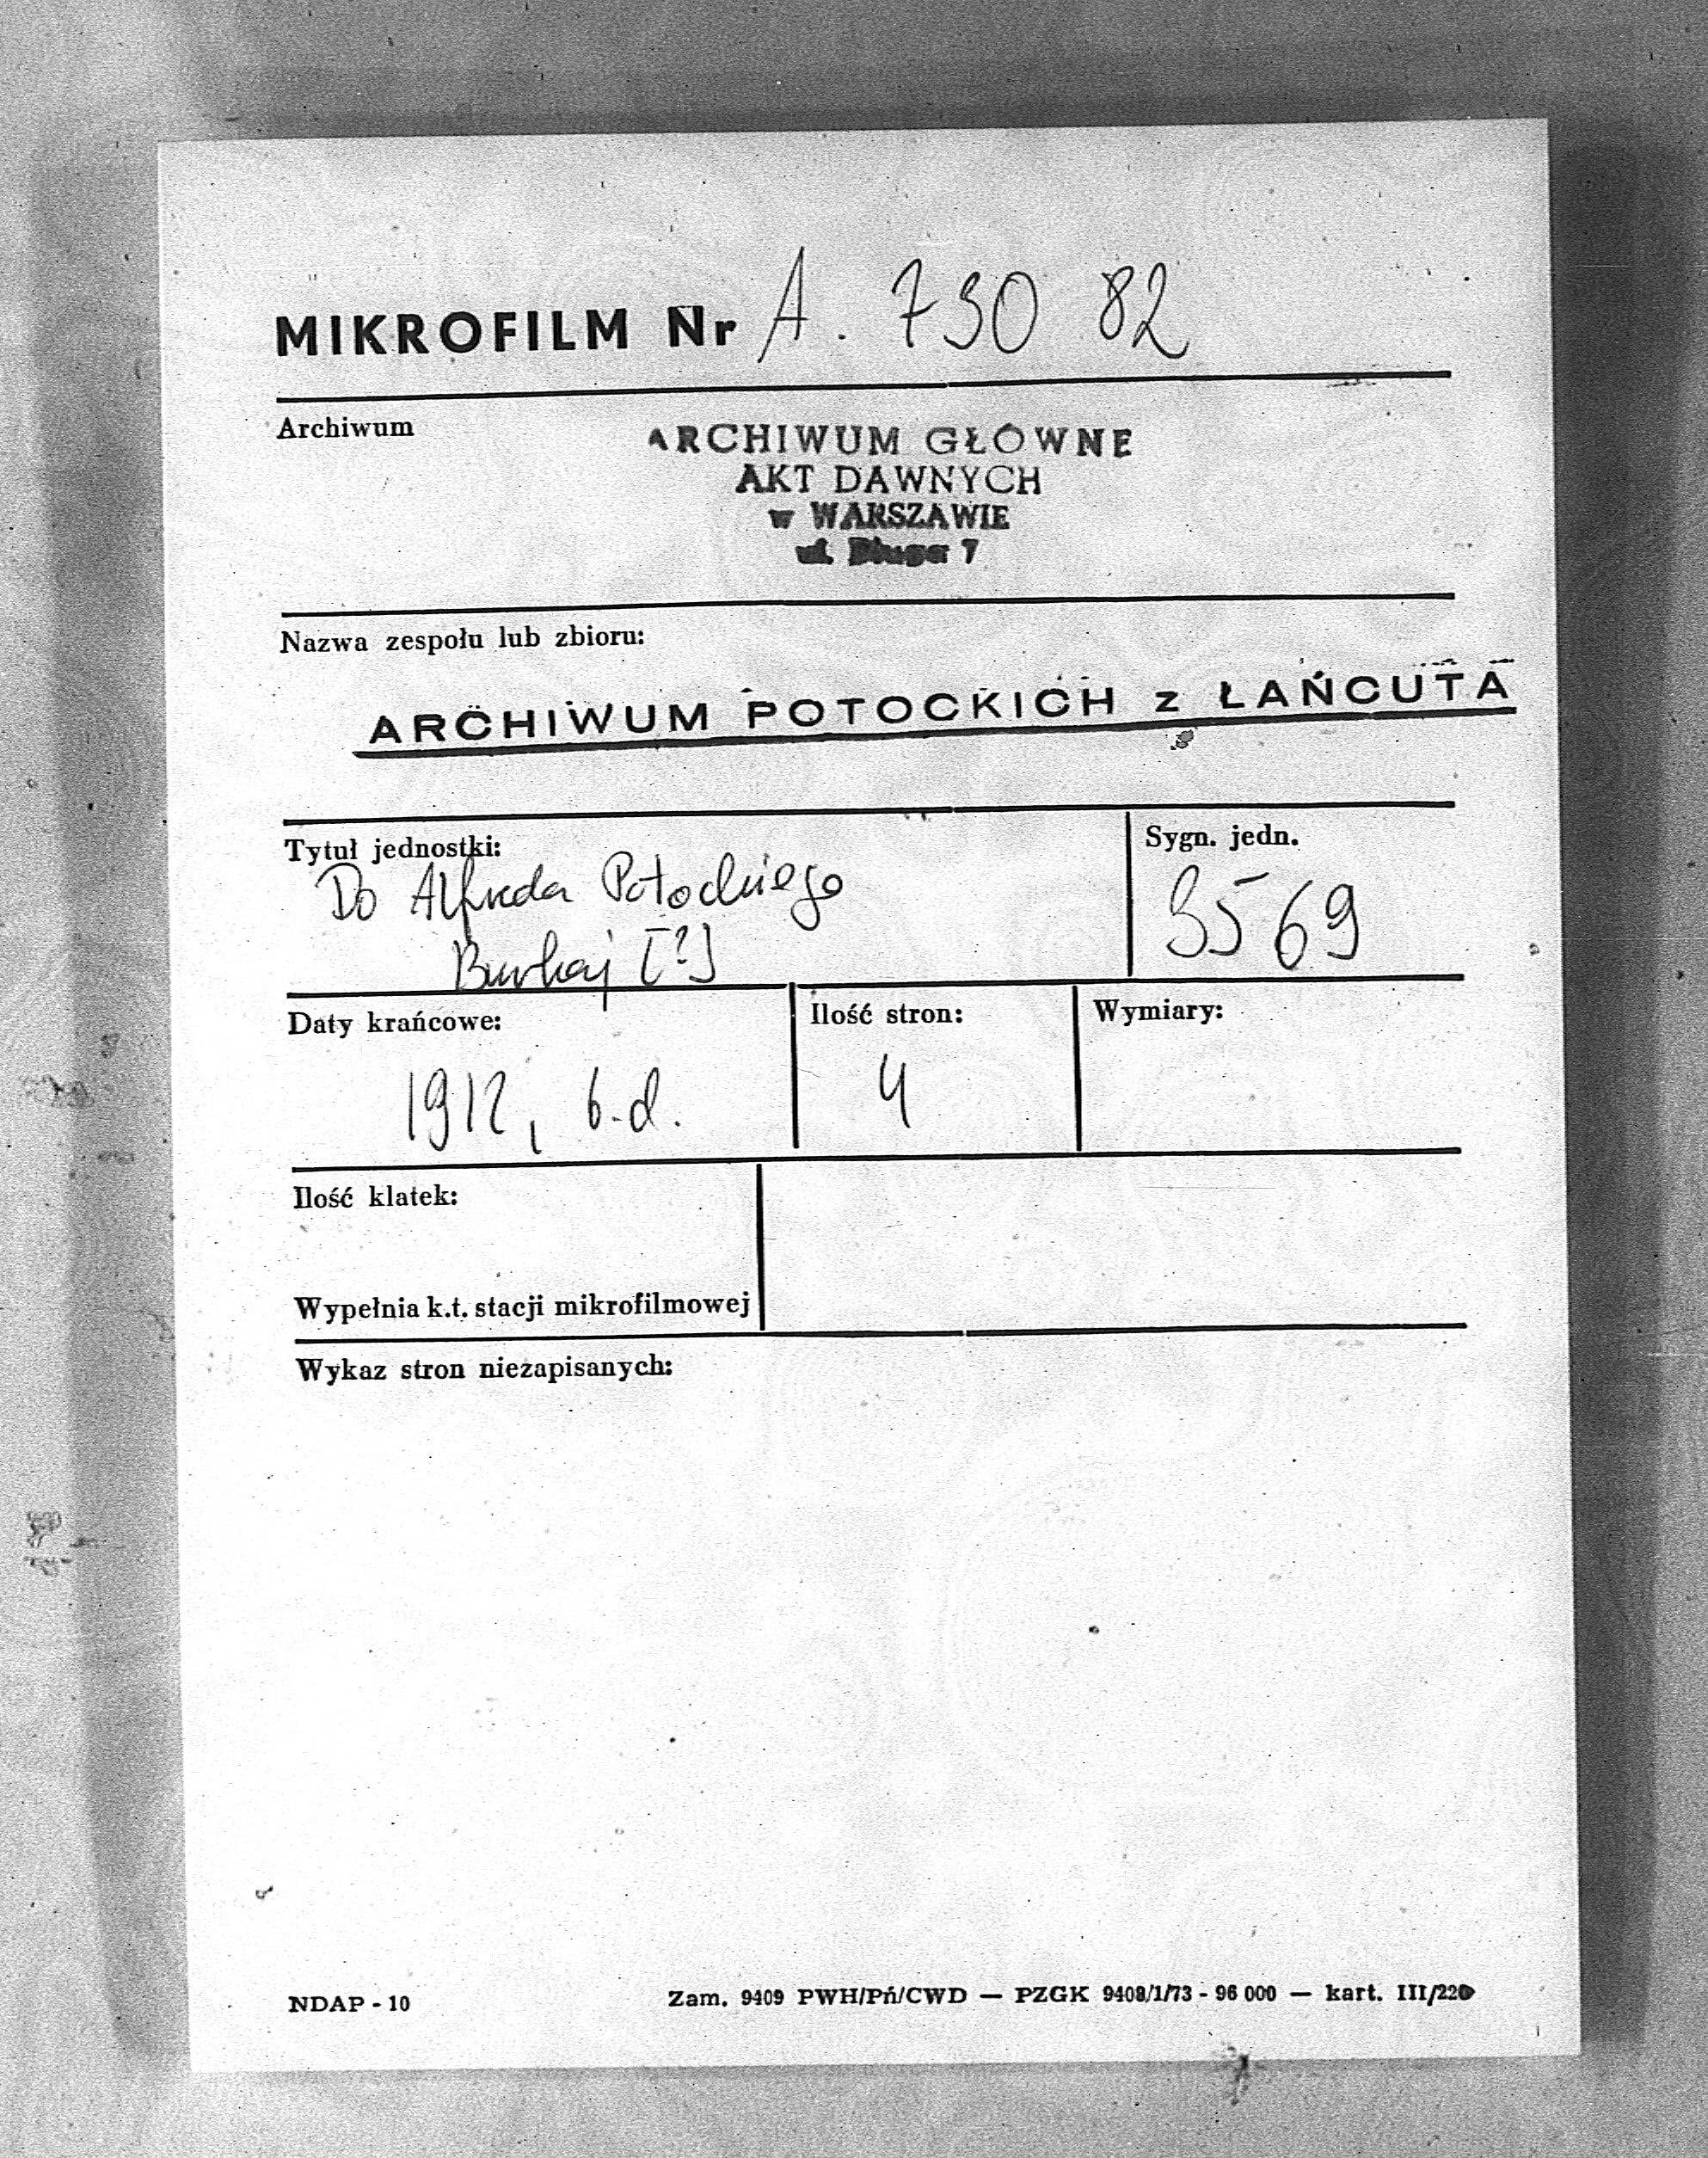 MIKROFILM Nr A. 730 82
Archiwum
ARCHIWUM GŁÓWNE
AKT DAWNYCH
w WARSZAWIE
ul. Długa 7
Nazwa zespołu lub zbioru:
ARCHIWUM POTOCKICH z ŁAŃCUTA
Tytuł jednostki:
Sygn. jedn.
Do Alfreda Potockiego
3569
[?]
Daty krańcowe:
Ilość stron:
Wymiary:
1912, b.d.
4
Ilość klatek:
Wypełnia k.t. stacji mikrofilmowej
Wykaz stron niezapisanych:
NDAP - 10
Zam. 9409 PWH/Pń/CWD — PZGK 9408/1/73 - 96 000 — kart. III/220